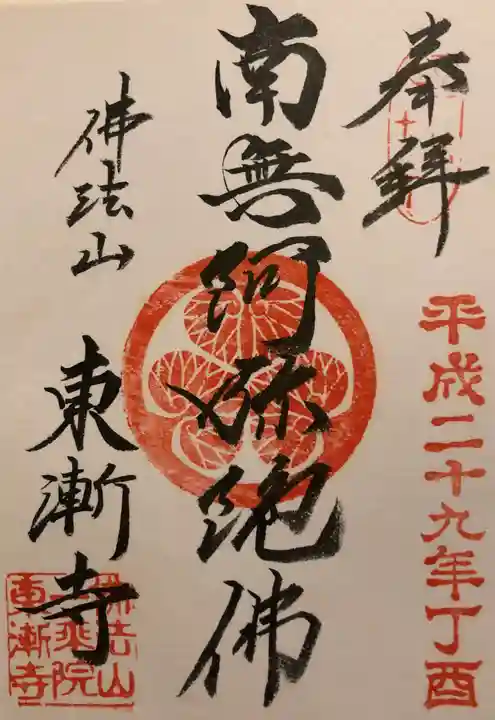 奉拝
平成二十九年丁酉
南無阿弥陀佛
佛法山
東漸寺
佛法山
一乗院
東漸寺